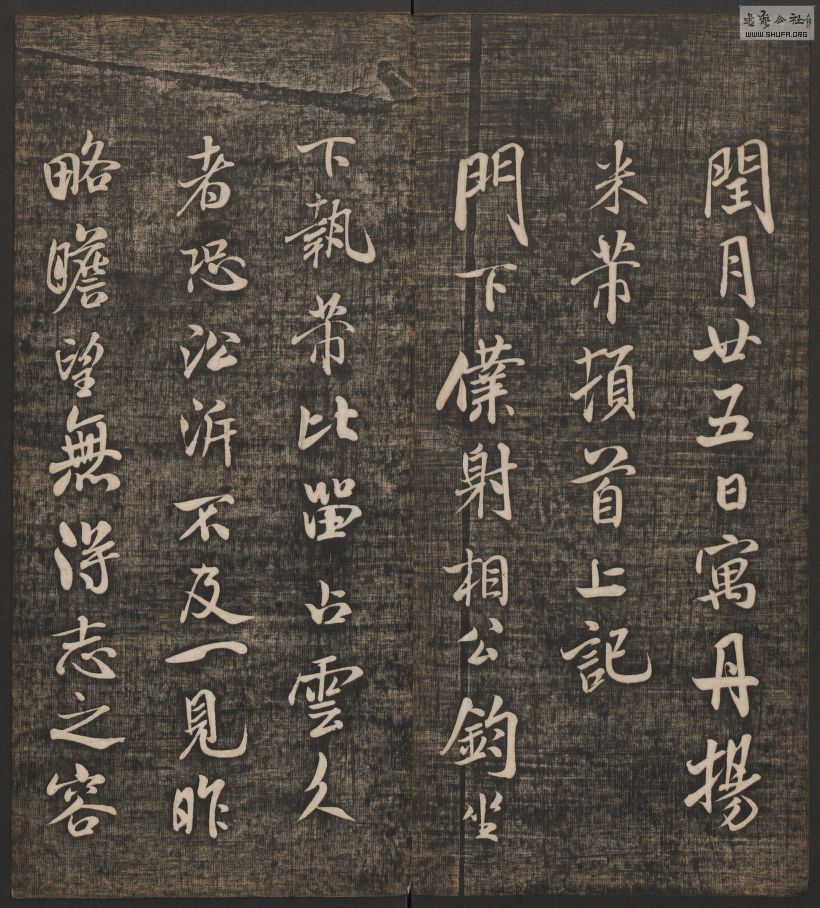 閏月廿五日寓丹揚
米芾頓首上記
門下僕射相公鈞坐
下執芾比留占雲久
者恐訟訴不及一見昨
略瞻望無得志之容
WWW.SHUFA.ORG